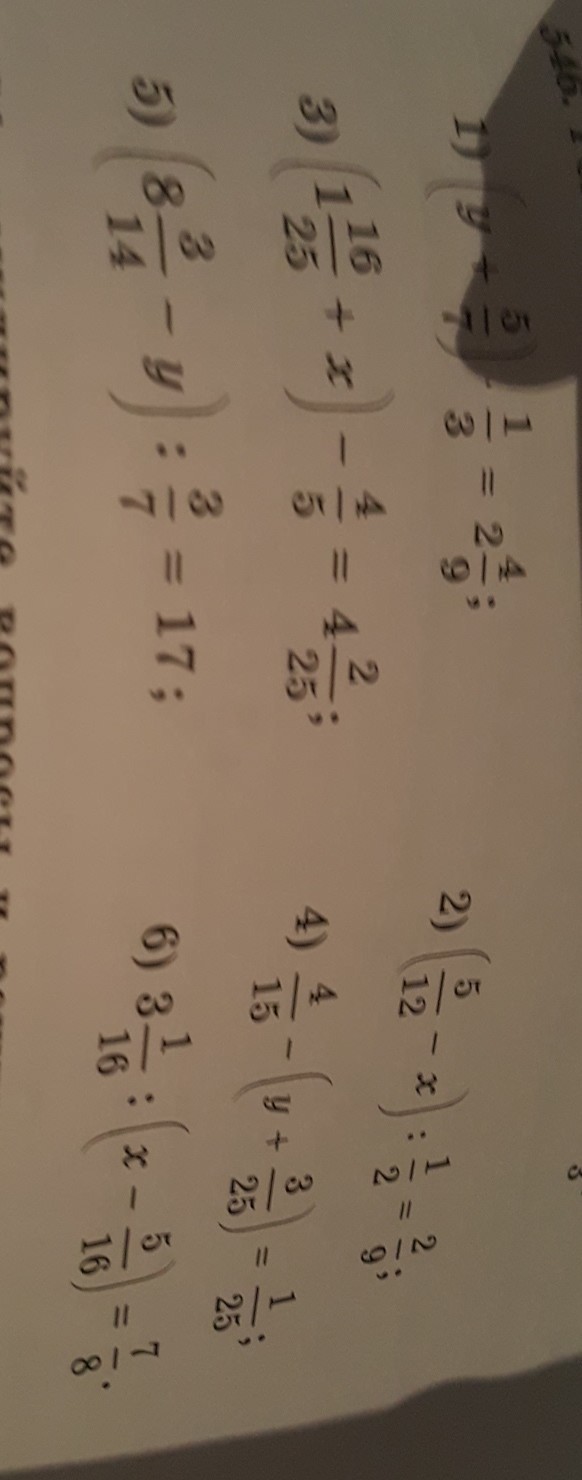 546.
1) (y + 5/7) · 1/3 = 2 4/9;
2) (5/12 − x) : 1/2 = 2/9;
3) (1 16/25 + x) − 4/5 = 4 2/25;
4) 4/15 − (y + 3/25) = 1/25;
5) (8 3/14 − y) : 3/7 = 17;
6) 3 1/16 : (x − 5/16) = 7/8.
вопросы к